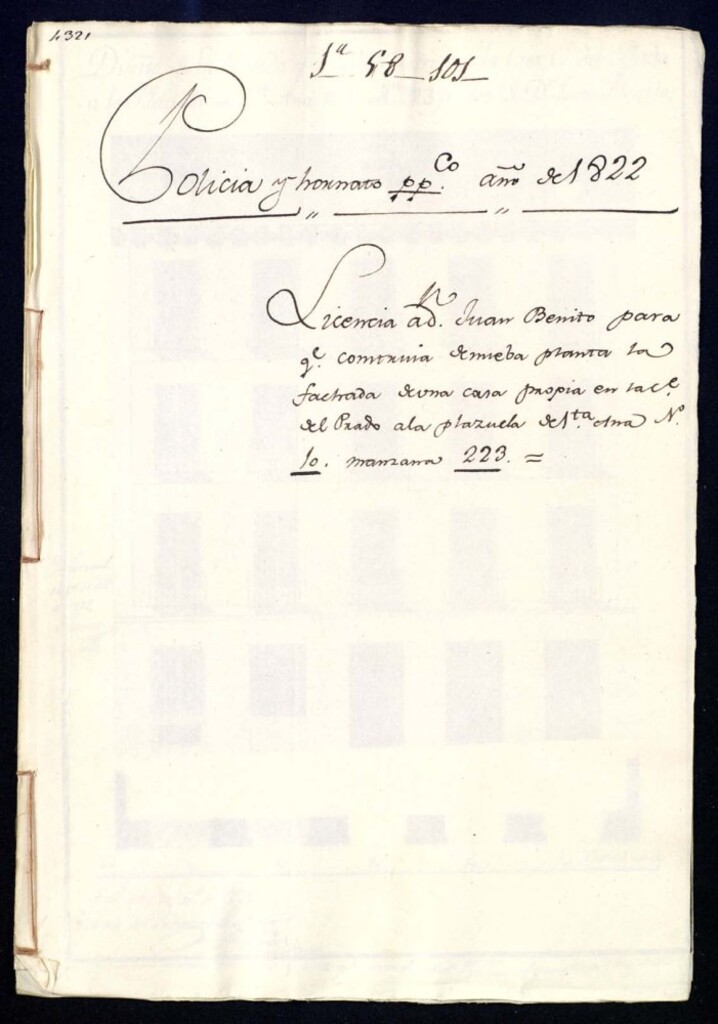 4321
1ª 58-101
Policia y hornato ppCo. año de 1822
Licencia a dn. Juan Benito para
qe. comstruia de nueba planta la
fachada de una casa propia en la ce.
del Prado a la plazuela de Sta. Ana No.
10. manzana 223. =